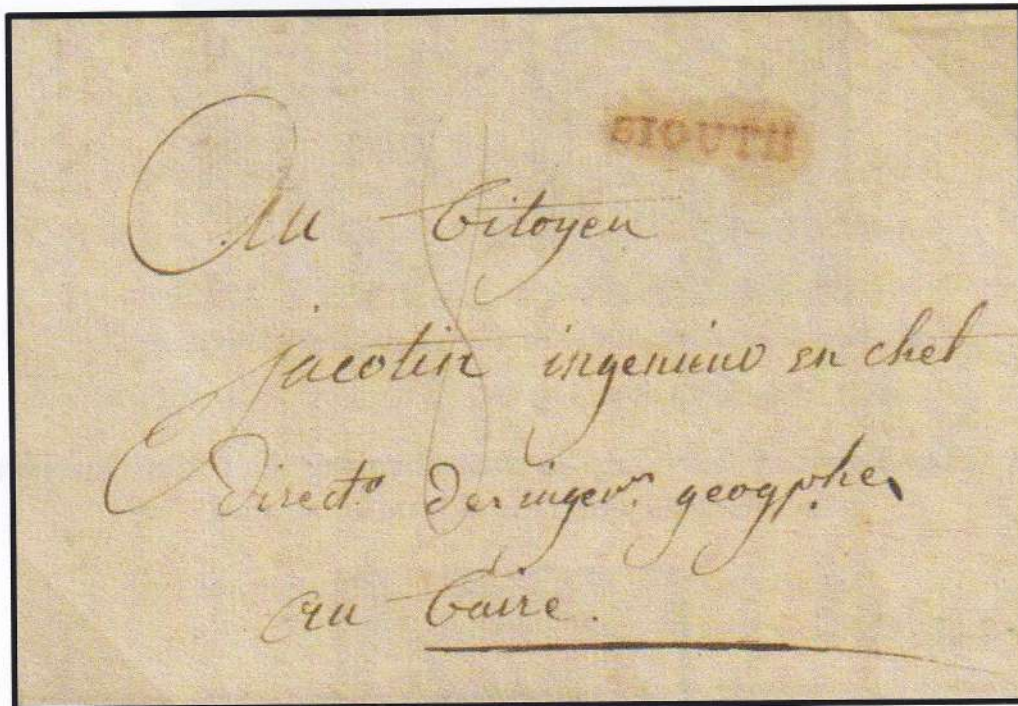 SIOUTH
Au Citoyen
jacotin ingenieur en chef
direct.r des ingen.rs geogphes
au Caire.